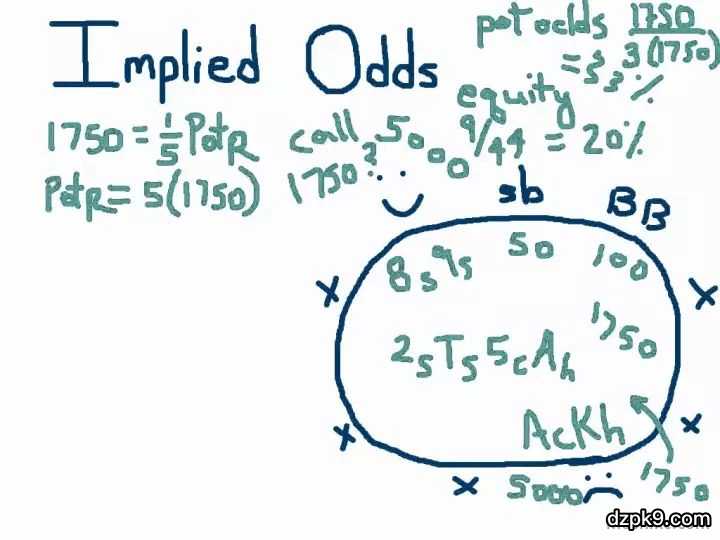 Implied Odds
pot odds 1750
3(1750)
= 33%
equity
9/44 = 20%
1750 = 1/5 PotR
PotR = 5(1750)
call 5000
1750?
sb
BB
8s9s
50
100
1750
2sTs5cAh
AcKh
5000
1750
dzpk9.com